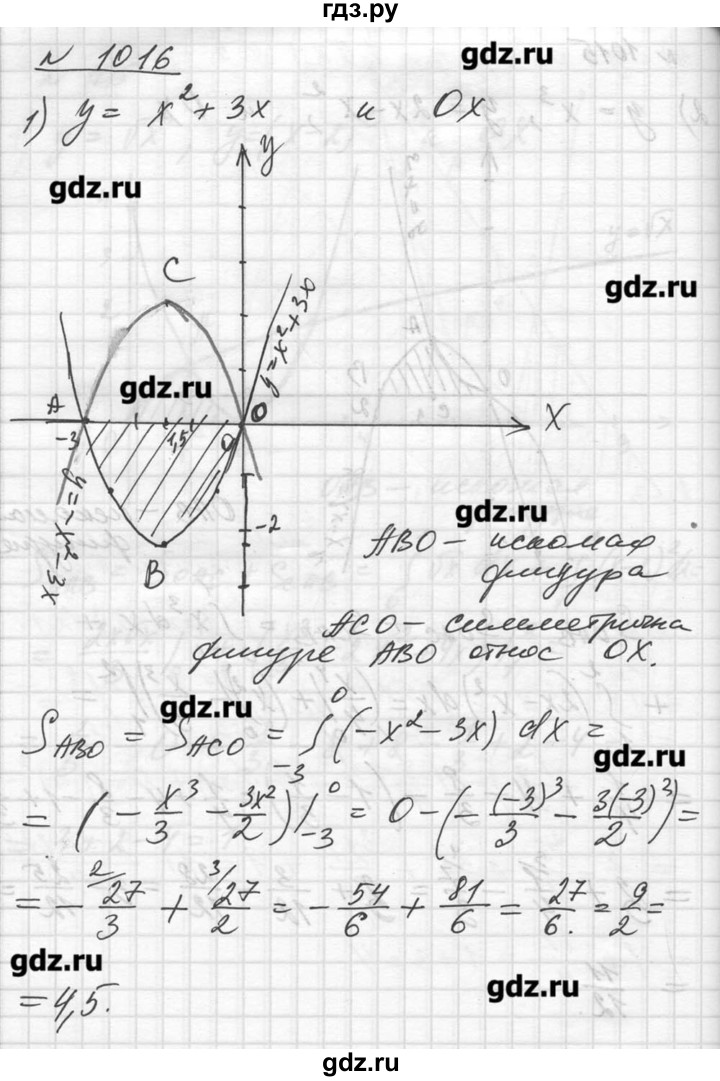 гдз.ру
№ 1016
gdz.ru
1) y = x² + 3x и Ox
y
gdz.ru
gdz.ru
C
y=x²+3x
gdz.ru
A
O
X
-3
1,5
O
y=-x²-3x
-2
gdz.ru
B
ABO - искомая
фигура
ACO - симметрична
фигуре ABO относ OX.
gdz.ru
S_ABO = S_ACO = ∫_{-3}^{0} (-x² - 3x) dx =
gdz.ru
= (-x³/3 - 3x²/2)|_{-3}^{0} = 0 - (-(-3)³/3 - 3(-3)²/2) =
= - ²⁄27/3 + ³⁄27/2 = - 54/6 + 81/6 = 27/6. = 9/2 =
gdz.ru
gdz.ru
= 4,5.
gdz.ru